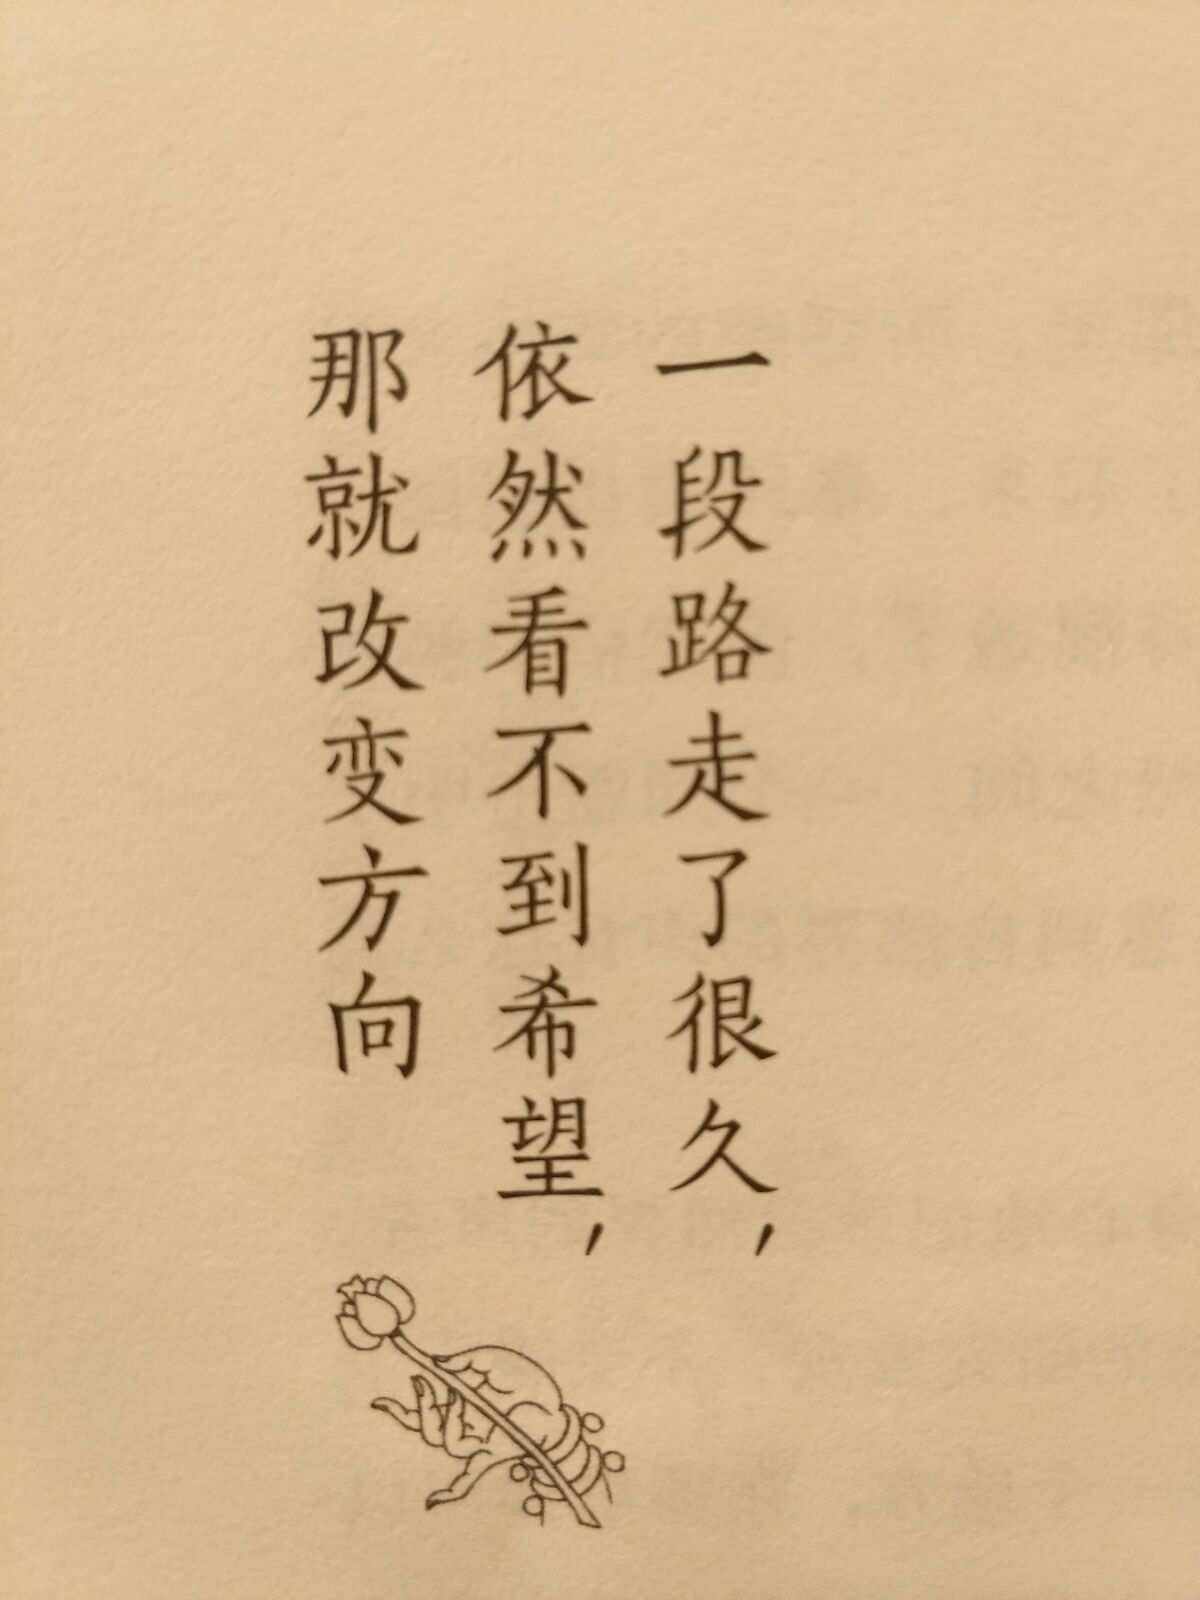 一段路走了很久，
依然看不到希望，
那就改变方向